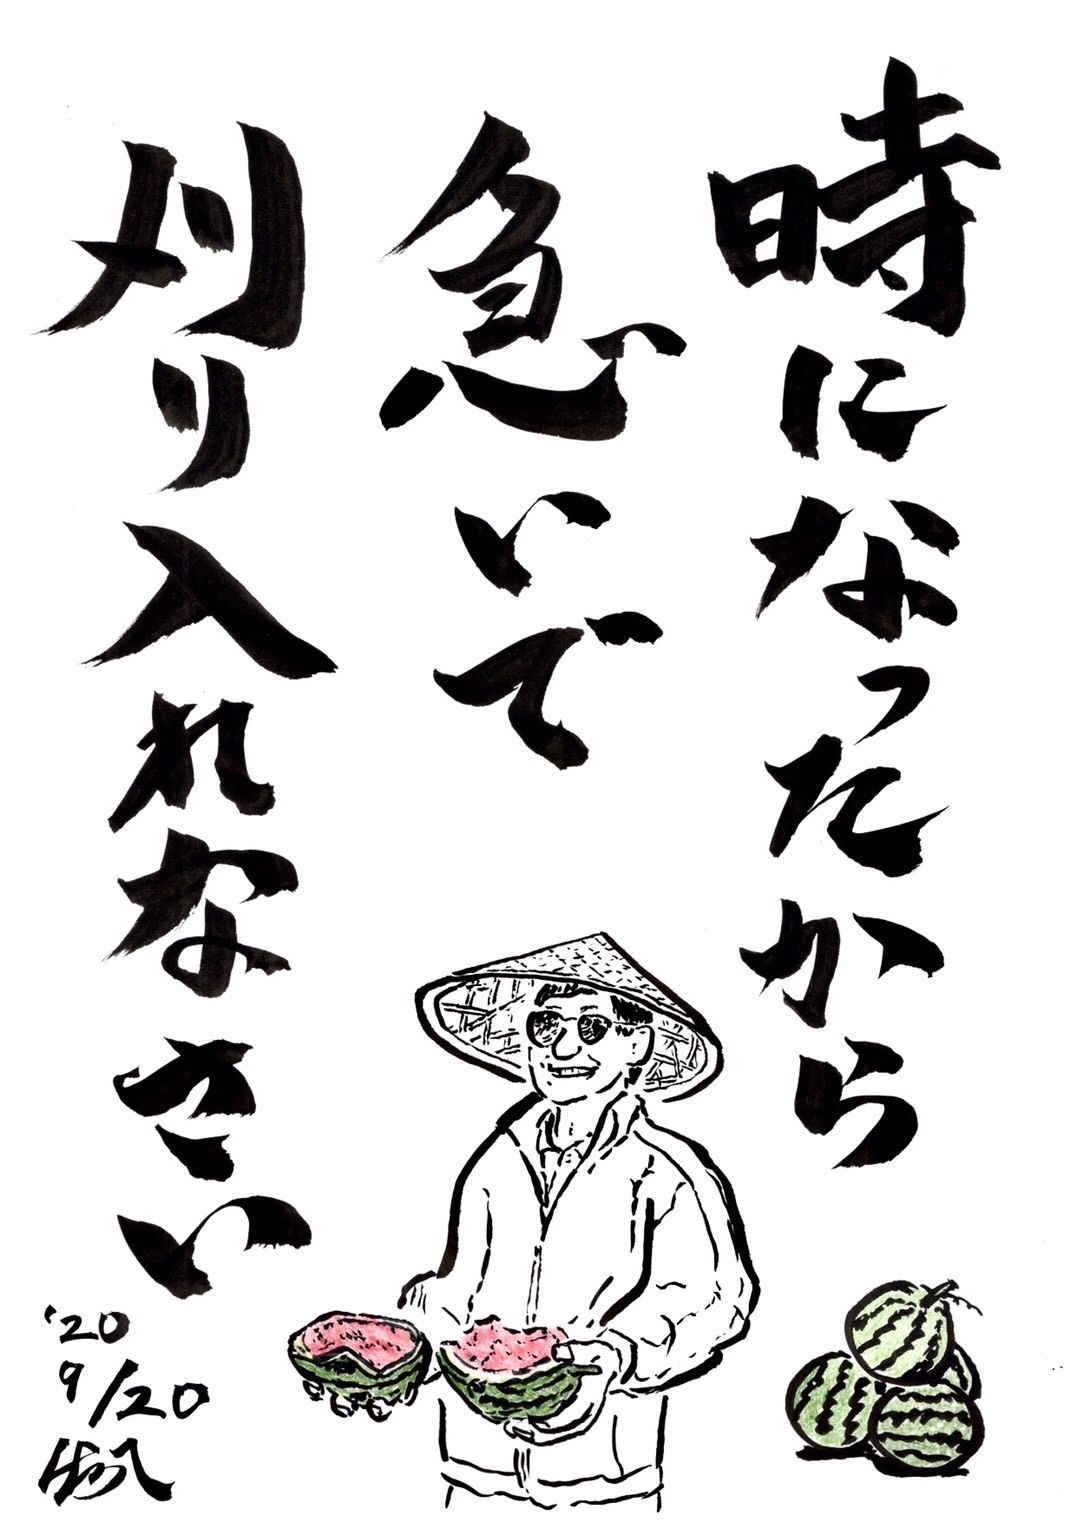 時になったから
急いで
刈り入れなさい
'20
9/20